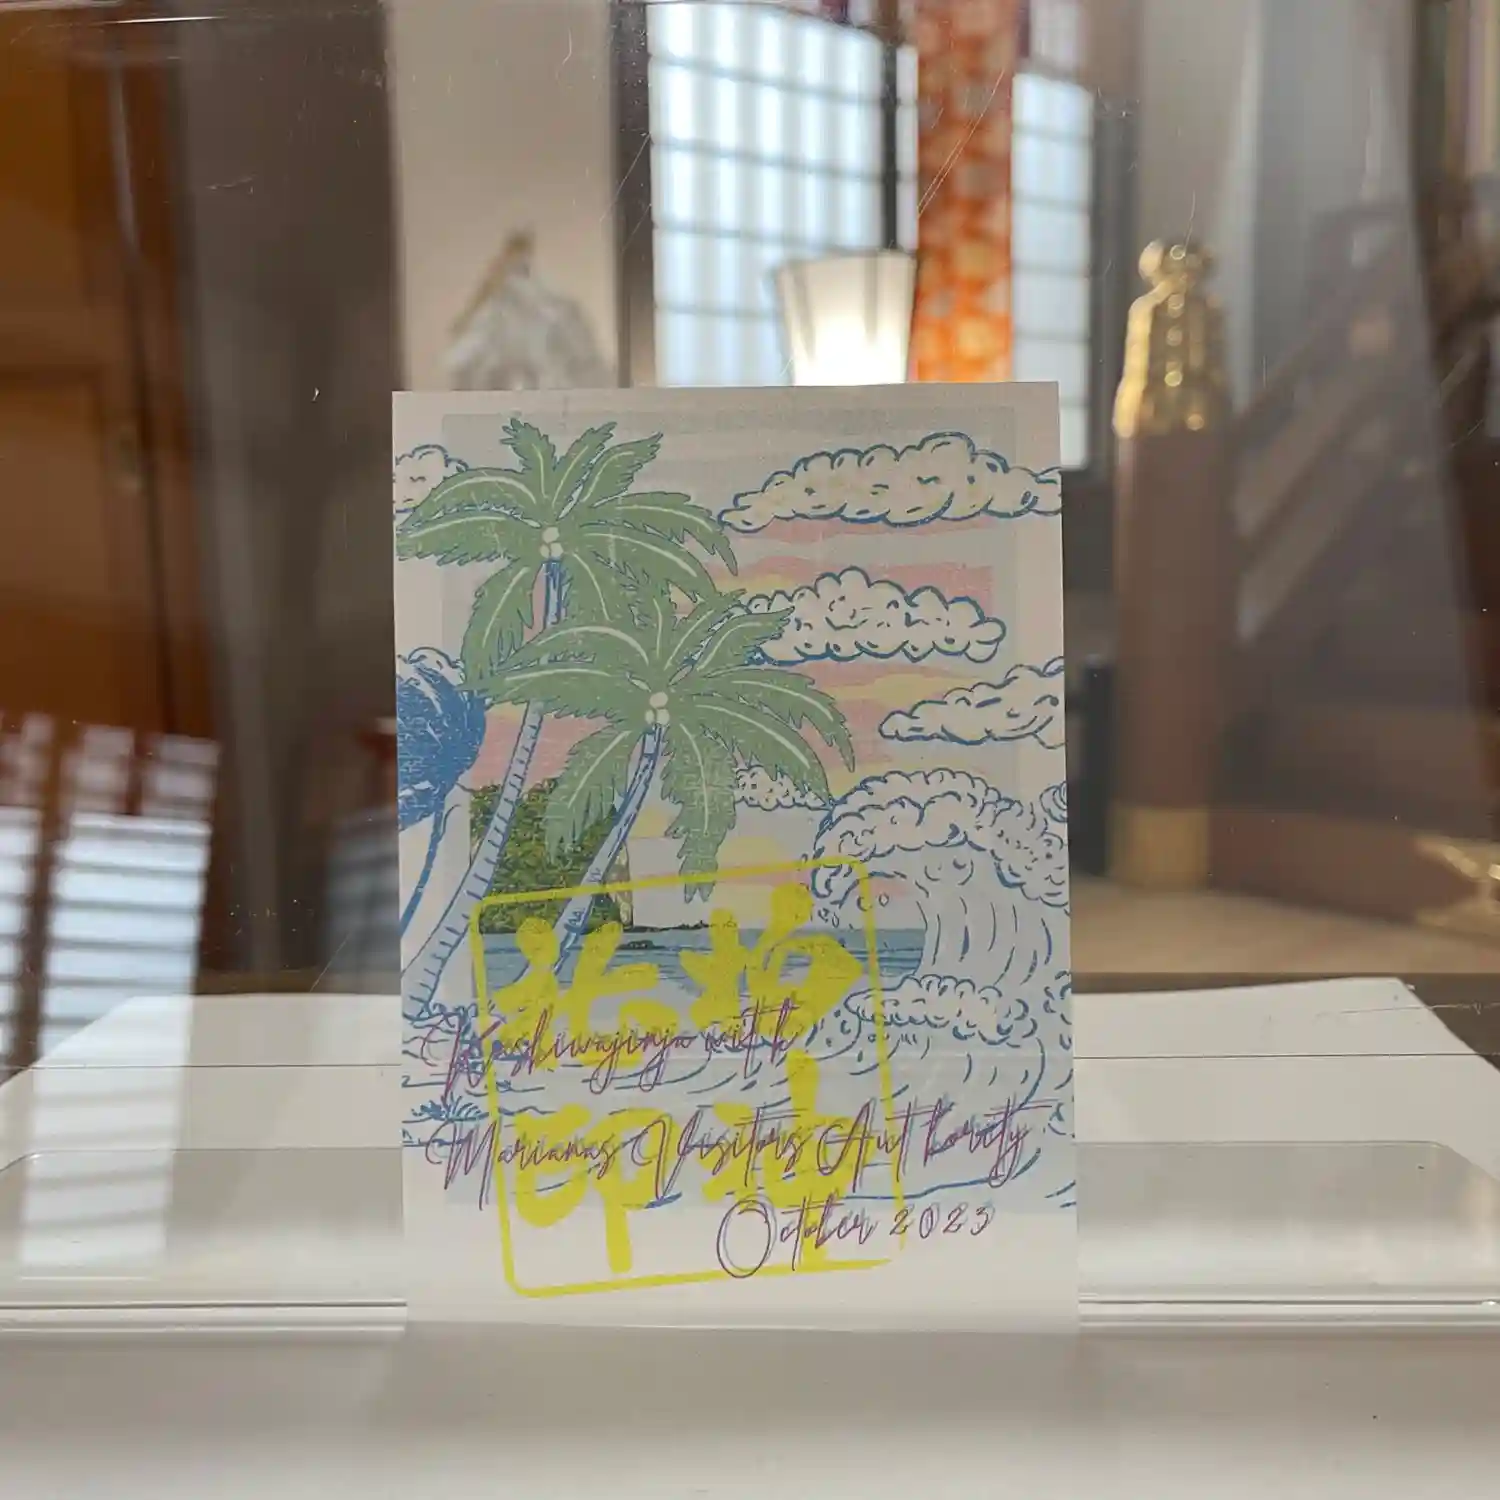 柏神
社印
Kashiwajinja with
Marianas Visitors Authority
October 2023